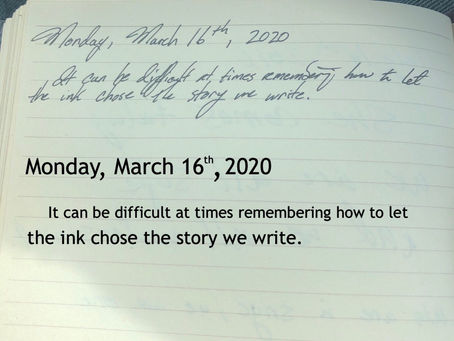 Monday, March 16th, 2020
It can be difficult at times remembering how to let
the ink chose the story we write.
Monday, March 16th, 2020
It can be difficult at times remembering how to let
the ink chose the story we write.